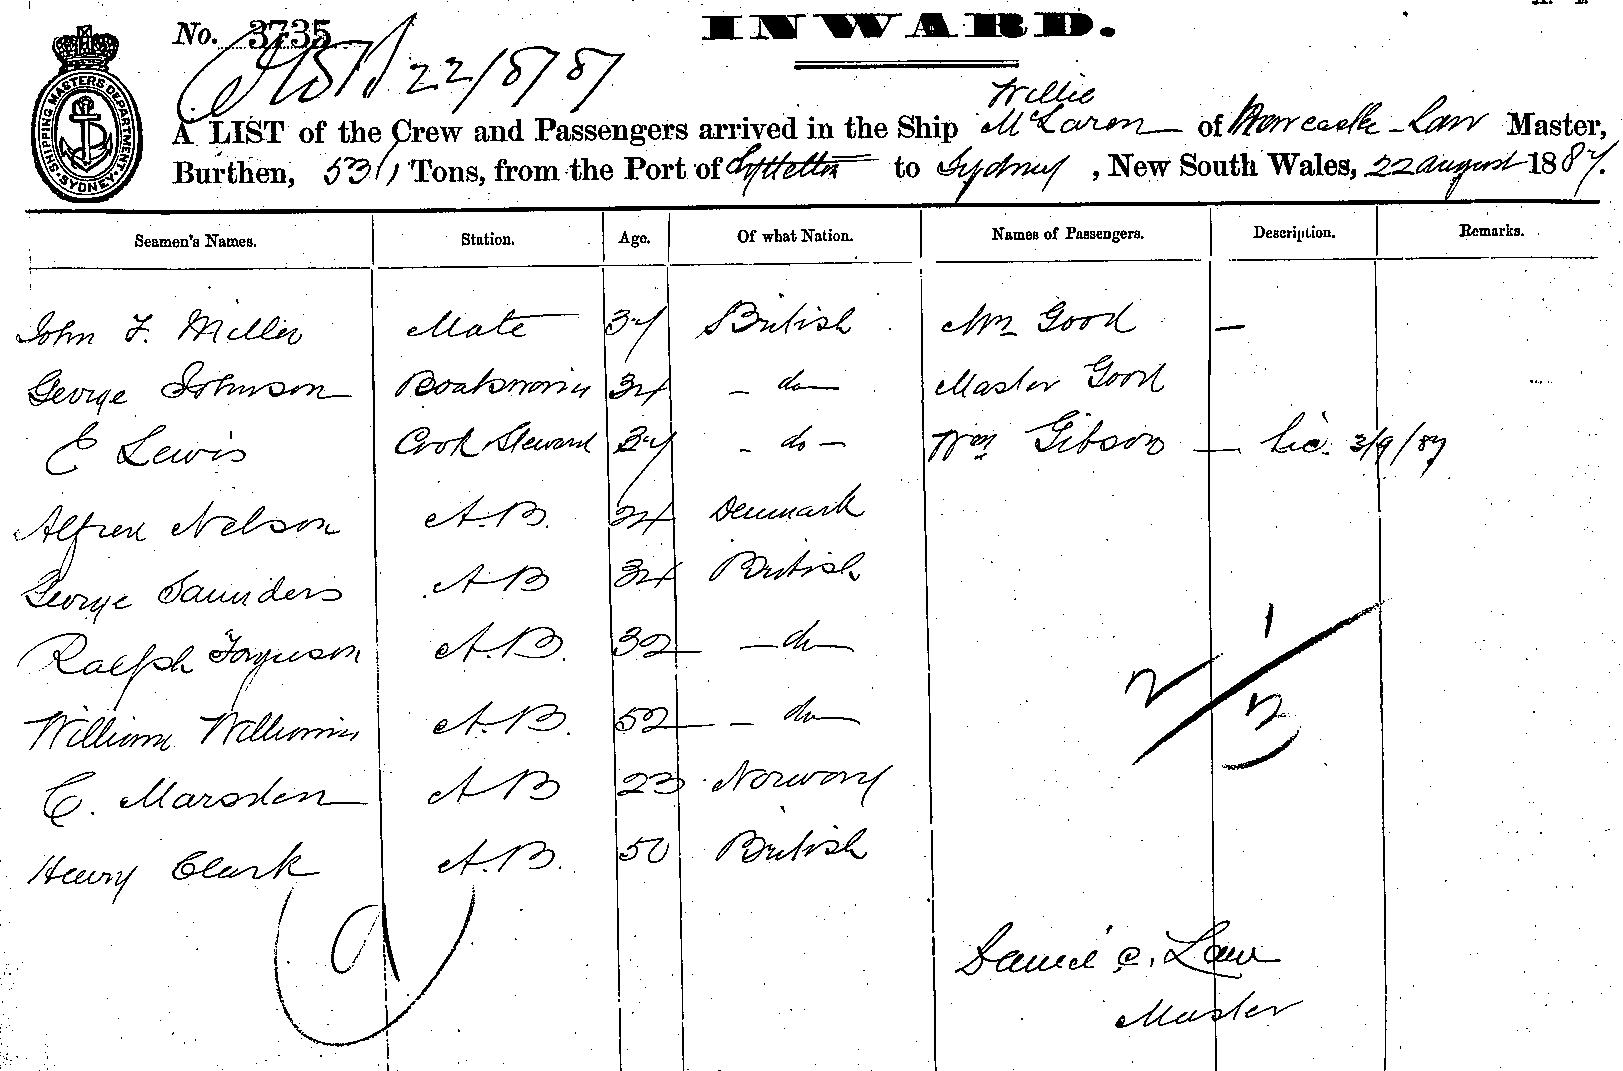 INWARD.
No. 3735
22/8/87
SHIPPING MASTERS DEPARTMENT SYDNEY
Willie
A LIST of the Crew and Passengers arrived in the Ship McLaren of Newcastle - Law Master,
Burthen, 531 Tons, from the Port of Lyttelton to Sydney, New South Wales, 22 August 1887.
Seamen's Names. Station. Age. Of what Nation. Names of Passengers. Description. Remarks.
John F. Miller Mate 37 British Mrs Good —
George Johnson Boatswain 34 - do - Master Good
E Lewis Cook Steward 37 - do - Wm Gibson — Lic. 3/9/87
Alfred Nelson A.B. 24 Denmark
George Saunders A.B 34 British
Ralph Ferguson A.B. 32 - do -
William Williams A.B. 52 - do -
C. Marsden A B 23 Norway
Henry Clark A.B. 50 British
9
Daniel C. Law
Master